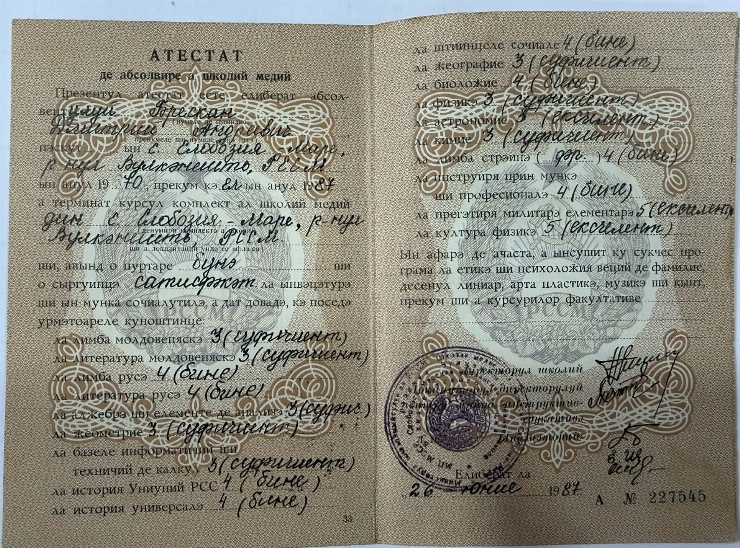 АТЕСТАТ
де абсолвире а школий медий
Презентул атестат есте елиберат абсол-
вентулуй Брескан
Дмитрий Андреевич
нэскут ын с. Слобозия Маре,
р-нул Вулкэнешть, РССМ
ын анул 19 70, прекум кэ ел ын анул 1987
а терминат курсул комплект ал школий медий
дин с. Слобозия-Маре, р-нул
Вулкэнешть РССМ
ши, авынд о пуртаре бунэ ши
о сыргуинцэ сатисфэкэт. ла ынвэцэтурэ
ши ын мунка сочиалутилэ, а дат довадэ, кэ поседэ
урмэтоареле куноштинце:
ла лимба молдовеняскэ 3 (суфичиент)
ла литература молдовеняскэ 3 (суфичиент)
ла лимба русэ 4 (бине)
ла литература русэ 4 (бине)
ла алжебрэ ши елементе де анализэ 3 (суфич.)
ла жеометрие 3 (суфичиент)
ла базеле информатичий ши
техничий де калкул 3 (суфичиент)
ла история Униуний РСС 4 (бине)
ла история универсалэ 4 (бине)
33
ла штиинцеле сочиале 4 (бине)
ла жеографие 3 (суфичиент)
ла биоложие 4 (бине)
ла физикэ 3 (суфичиент)
ла астрономие 5 (ексчелент)
ла химие 3 (суфичиент)
ла лимба стрэинэ (фр.) 4 (бине)
ла инструиря прин мункэ
ши професионалэ 4 (бине)
ла прегэтиря милитарэ елементарэ 5 (ексчелент)
ла културa физикэ 5 (ексчелент)
Ын афарэ де ачаста, а ынсушит ку сукчес про-
грама ла етикэ ши психоложия веций де фамилие,
десенул линиар, арта пластикэ, музикэ ши кынт,
прекум ши а курсурилор факултативе
Директорул школий
Елиберат ла
„26 юние 1987
А № 227545